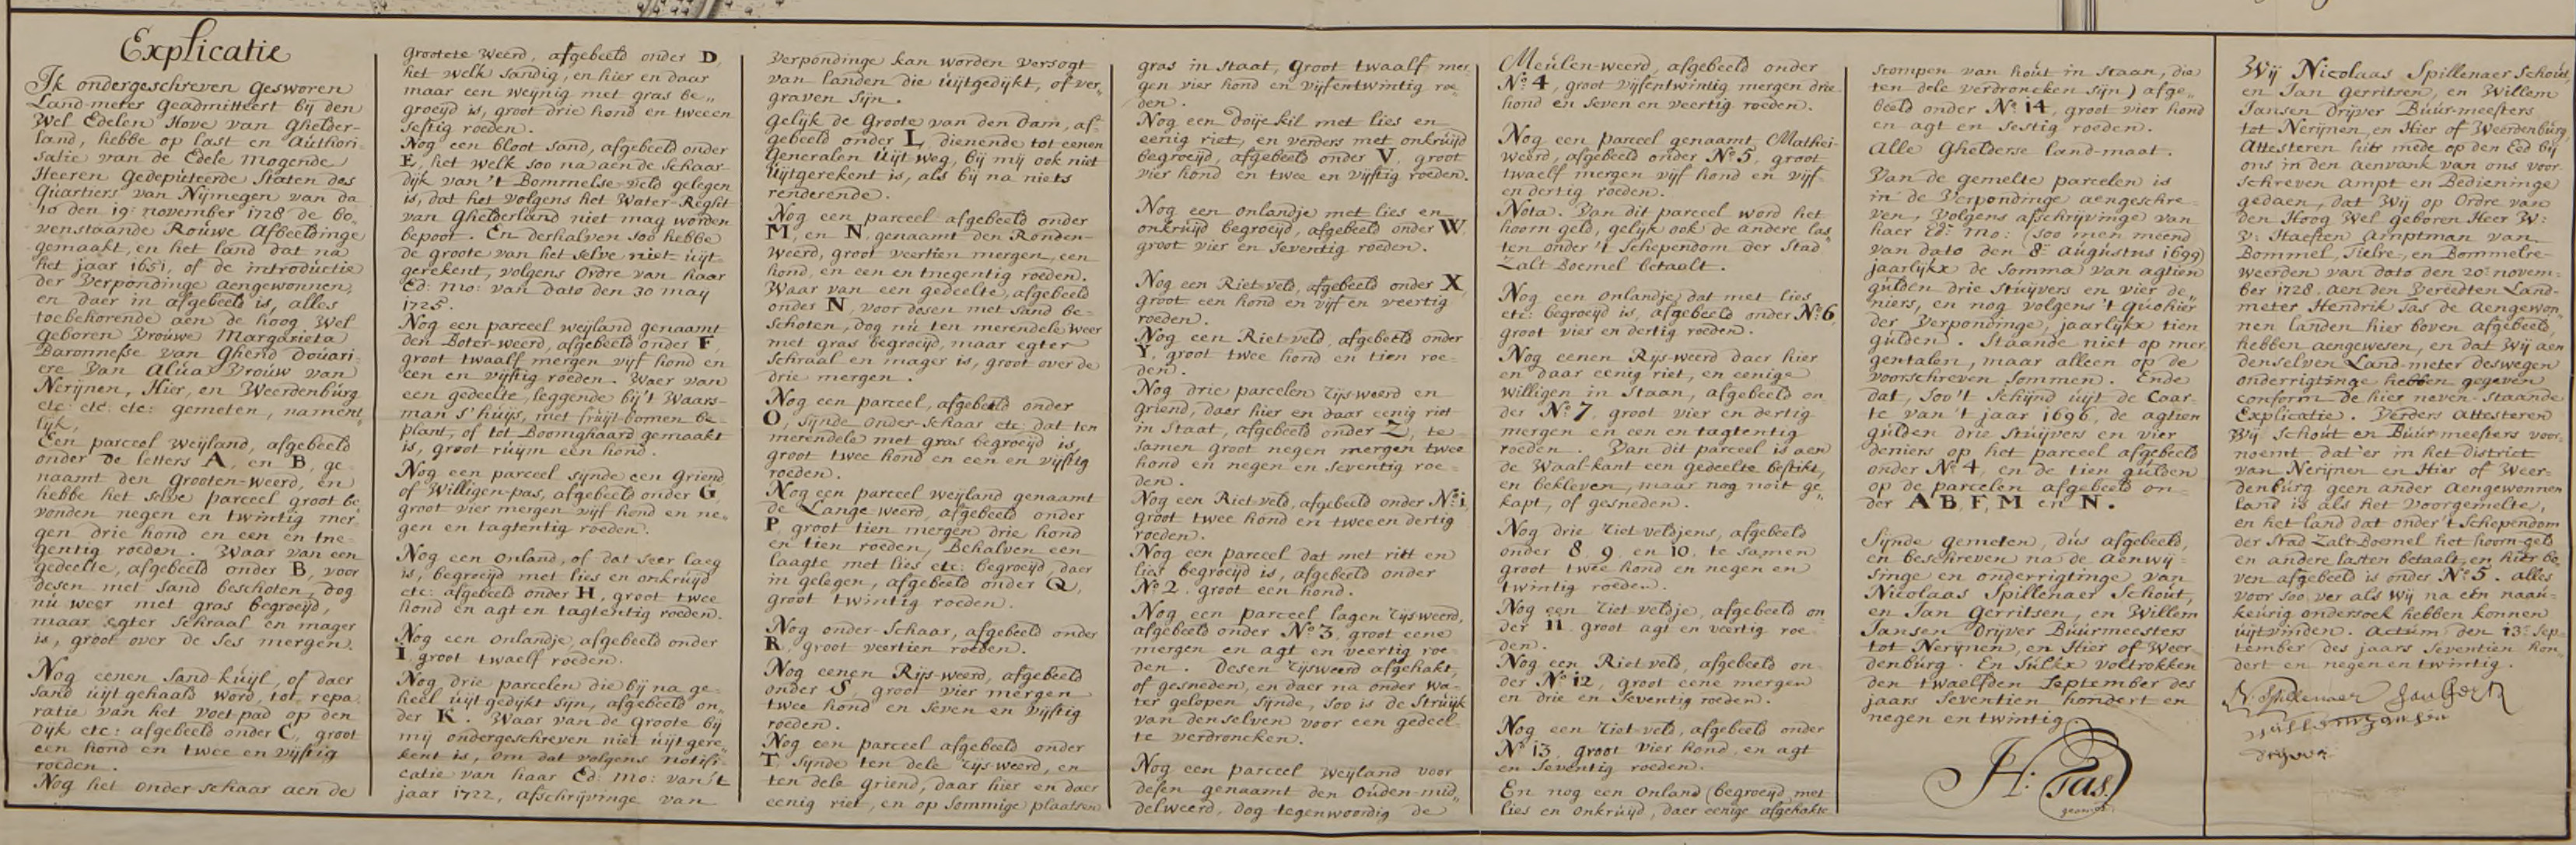 Explicatie
Ik ondergeschreven Gesworen
Land-meter Geadmitteert bij den
Wel Edelen Hove van Ghelder-
land, hebbe op last en Authori-
satie van de Edele Mogende
Heeren Gedepúteerde Staten des
Quartiers van Nijmegen van da
to den 19: november 1728 de bo-
venstaande Roúwe Afbeeldinge
gemaakt, en het land dat na
het jaar 1651, of de introductie
der Verpondinge aengewonnen,
en daer in afgebeelt is, alles
toebehorende aen de hoog Wel
Geboren Vroúwe Margarieta
Baronnesse van Ghend Doúari-
ere van Alúa Vroúw van
Nerijnen, Hier, en Weerdenbúrg
etc: etc: etc: gemeten, nament
lijk,
Een parceel Weijland, afgebeeld
onder de letters A, en B, ge
naamt den Grooten-weerd, en
hebbe het selve parceel groot be
vonden negen en twintig mer
gen drie hond en een en tne-
gentig roeden. Waar van een
gedeelte, afgebeeld onder B, voor
desen met sand beschoten, dog
nú weer met gras begroeijd,
maar egter schraal en mager
is, groot over de ses mergen.
Nog eenen sand-kúijl, of daer
sand úijtgehaald word, tot repa
ratie van het voet pad op den
Dijk etc: afgebeeld onder C, groot
een hond en twee en vijftig
roeden.
Nog het onder-schaar aen de
Grootete weerd, afgebeeld onder D,
het welk sandig, en hier en daar
maar een weijnig met gras be„
groeijd is, groot drie hond en tweeen
seftig roeden.
Nog een bloot sand, afgebeeld onder
E, het welk soo na aen de schaar-
dijk van 't Bommelse-veld gelegen
is, dat het volgens het Water-Reght
van Ghelderland niet mag worden
bepoot. En derhalven soo hebbe
de groote van het selve niet úijt-
gerekent, volgens Ordre van haar
Ed: Mo: van dato den 30 maij
1725.
Nog een parceel weijland genaamt
den Boter-weerd, afgebeeld onder F,
groot twaalf mergen vijf hond en
een en vijftig roeden. Waer van
een gedeelte, leggende bij't Waars-
man s'húijs, met frúijt-bomen be-
plant, of tot Boomghaard gemaakt
is, groot rúijm een hond.
Nog een parceel sijnde een Griend
of Willigen-pas, afgebeeld onder G,
groot vier mergen vijf hond en ne„
gen en tagtentig roeden.
Nog een onland, of dat seer laeg
is, begroeijd met lies en onkrúijd
etc: afgebeeld onder H, groot twee
hond en agt en tagtentig roeden.
Nog een onlandje, afgebeeld onder
I, groot twaelf roeden.
Nog drie parcelen die bij na ge-
heel úijtgedijkt sijn, afgebeeld on-
der K. Waar van de Groote bij
mij ondergeschreven niet úijtgere„
kent is, om dat volgens notifi-
catie van haar Ed: Mo: van't
jaar 1722, afschrijvinge van
Verpondinge kan worden versogt
van landen die úijtgedijkt, of ver„
graven sijn.
Gelijk de Groote van den Dam, af-
gebeeld onder L, dienende tot eenen
Generalen úijtweg, bij mij ook niet
úijtgerekent is, als bij na niets
renderende.
Nog een parceel afgebeeld onder
M, en N, genaamt den Ronden-
Weerd, groot veertien mergen, een
hond, en een en tnegentig roeden.
Waar van een gedeelte, afgebeeld
onder N, voor desen met sand be-
schoten, dog nú ten merendele weer
met gras begroeijd, maar egter
schraal en mager is, groot over de
drie mergen.
Nog een parceel, afgebeeld onder
O, sijnde onder-schaar etc: dat ten
merendele met gras begroeijd is,
groot twee hond en een en vijftig
roeden.
Nog een parceel weijland genaamt
de Lange weerd, afgebeeld onder
P, groot tien mergen drie hond
en tien roeden, Behalven een
laagte met lies etc: begroeijd, daer
in gelegen, afgebeeld onder Q,
groot twintig roeden.
Nog onder-Schaar, afgebeeld onder
R, groot veertien roeden.
Nog eenen Rijs-weerd, afgebeeld
onder S, groot vier mergen
twee hond en seven en vijftig
roeden.
Nog een parceel afgebeeld onder
T, sijnde ten dele rijs-weerd, en
ten dele griend, daar hier en daer
eenig riet, en op sommige plaatsen
gras in staat, Groot twaalf mer„
gen vier hond en vijfentwintig roe„
den.
Nog een doije kil met lies en
eenig riet, en verders met onkrúijd
begroeijd, afgebeeld onder V, groot
vier hond en twee en vijftig roeden.
Nog een onlandje met lies en
onkrúijd begroeijd, afgebeeld onder W,
groot vier en seventig roeden.
Nog een Riet veld, afgebeeld onder X,
groot een hond en vijf en veertig
roeden.
Nog een Riet-veld, afgebeeld onder
Y, groot twee hond en tien roe-
den.
Nog drie parcelen rijs-weerd en
Griend, daer hier en daar eenig riet
in staat, afgebeeld onder Z, te
samen groot negen mergen twee
hond en negen en seventig roe-
den.
Nog een Riet veld, afgebeeld onder No: 1
groot twee hond en tweeen dertig
roeden.
Nog een parceel dat met riet en
lies begroeijd is, afgebeeld onder
No: 2. groot een hond.
Nog een parceel lagen rijsweerd,
afgebeeld onder No: 3, groot eene
mergen en agt en veertig roe-
den. Desen rijsweerd afgehakt,
of gesneden, en daer na onder wa-
ter gelopen sijnde, soo is de Strúijk
van denselven voor een gedeel-
te verdroncken.
Nog een parceel weijland voor
desen genaamt den Oúden-mid„
delweerd, dog tegenwoordig de
Meúlen-weerd, afgebeeld onder
No: 4, groot vijfentwintig mergen drie
hond en seven en veertig roeden.
Nog een parceel genaamt Mathei-
weerd, afgebeeld onder No: 5, groot
twaelf mergen vijf hond en vijf
en dertig roeden.
Nota. Van dit parceel word het
hoorn geld, gelijk ook de andere las„
ten onder 't Schependom der Stad
Zalt Boemel betaalt.
Nog een onlandje, dat met lies
etc: begroeijd is, afgebeeld onder No: 6,
groot vier en dertig roeden.
Nog eenen Rijs-weerd daer hier
en daar eenig riet, en eenige
willigen in staan, afgebeeld on
der No: 7, groot vier en dertig
mergen en een en tagtentig
roeden. Van dit parceel is aen
de Waal-kant een gedeelte bestikt,
en bekleven, maar nog noit ge„
kapt, of gesneden.
Nog drie riet veldjens, afgebeeld
onder 8, 9, en 10, te samen
groot twee hond en negen en
twintig roeden.
Nog een riet veldje, afgebeeld on
der 11, groot agt en veertig roe-
den.
Nog een Riet veld, afgebeeld on-
der No: 12, groot eene mergen
en drie en seventig roeden.
Nog een riet-veld, afgebeeld onder
No: 13, groot vier hond, en agt
en seventig roeden.
En nog een onland (begroeijd met
lies en onkrúijd, daer eenige afgehakte
stompen van hoút in staan, die
ten dele verdroncken sijn) afge„
beeld onder No: 14, groot vier hond
en agt en sestig roeden.
Alle Ghelderse land-maat.
Van de gemelte parcelen is
in de Verpondinge aengeschre-
ven, volgens afschrijvinge van
haer Ed: Mo: (soo men meend
van dato den 8: aúgústús 1699)
jaarlijkx de somma van agtien
gúlden drie stúijvers en vier de„
niers, en nog volgens 't Quohier
der Verpondinge, jaarlijkx tien
gúlden. Staande niet op mer
gentalen, maar alleen op de
voorschreven sommen. Ende
dat, soo't schijnd úijt de Caar-
te van 't jaar 1696, de agtien
gúlden drie stúijvers en vier
deniers op het parceel afgebeeld
onder No: 4, en de tien gúlden
op de parcelen afgebeeld on-
der A B, F, M en N.
Sijnde gemeten, dús afgebeeld,
en beschreven na de aenwij-
singe en onderrigtinge van
Nicolaas Spillenaer Schoút,
en Jan Gerritsen, en Willem
Jansen Drijver Búúrmeesters
tot Nerijnen, en Hier of Weer-
denbúrg. En súlkx voltrokken
den twaelfden September des
jaars seventien hondert en
negen en twintig.
H: Tas.
Wij Nicolaas Spillenaer Schoút,
en Jan Gerritsen, en Willem
Jansen Drijver Búúr-meesters
tot Nerijnen, en Hier of Weerdenbúrg,
Attesteren hier mede op den Eed bij
ons in den aenvank van ons voor-
schreven ampt en Bedieninge
gedaen, dat Wij op Ordre van
den Hoog Wel geboren Heer W:
V: Haeften Amptman van
Bommel, Tielre, en Bommelre-
weerden van dato den 20: novem-
ber 1728. aen den Vereedten Land-
meter Hendrik Tas de Aengewon„
nen landen hier boven afgebeeld,
hebben aengewesen, en dat Wij aen
denselven Land-meter deswegen
onderrigtinge hebben gegeven
conform de hier neven-staande
Explicatie. Verders Attesteren
Wij Schoút en Búúrmeesters voor-
noemt, dat'er in het district
van Nerijnen en Hier of Weer-
denbúrg geen ander aengewonnen
land is als het voorgemelte,
en het land dat onder't schependom
der Stad Zalt Boemel het hoorn-geld
en andere lasten betaalt, en hier bo-
ven afgebeeld is onder No: 5. alles
voor soo ver als Wij na een naaú-
keúrig ondersoek hebben konnen
úijtvinden. Actúm den 13: Sep-
tember des jaars seventien hon-
dert en negen en twintig.
N. Spillenaer Jan Gerr
Willem Jansen
drijver